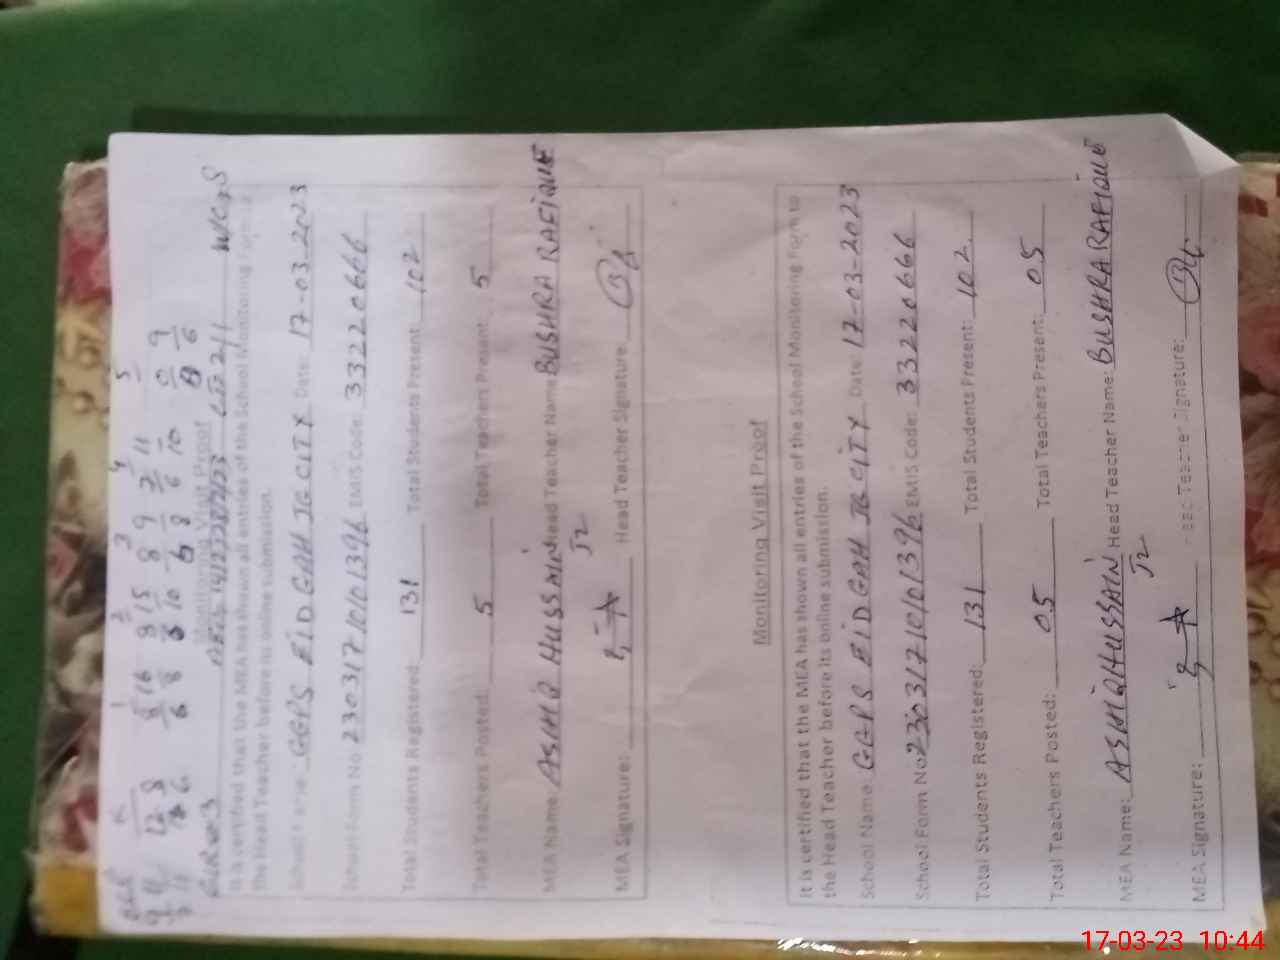 Monitoring Visit Proof
It is certified that the MEA has shown all entries of the School Monitoring Form to
the Head Teacher before its online submission.
School Name: GGPS EiD GAH JG CITY Date: 17-03-2023
School Form No 23031710101396 EMIS Code: 33220666
Total Students Registered: 131 Total Students Present: 102
Total Teachers Posted: 5 Total Teachers Present: 5
MEA Name: ASHIQ HUSSAIN Head Teacher Name: BUSHRA RAFIQUE
MEA Signature: Head Teacher Signature:
Monitoring Visit Proof
It is certified that the MEA has shown all entries of the School Monitoring Form to
the Head Teacher before its online submission.
School Name: GGPS EiD GAH JG CITY Date: 17-03-2023
School Form No 23031710101396 EMIS Code: 33220666
Total Students Registered: 131 Total Students Present: 102
Total Teachers Posted: 05 Total Teachers Present: 05
MEA Name: ASHIQ HUSSAIN Head Teacher Name: BUSHRA RAFIQUE
MEA Signature: Head Teacher Signature:
17-03-23 10:44